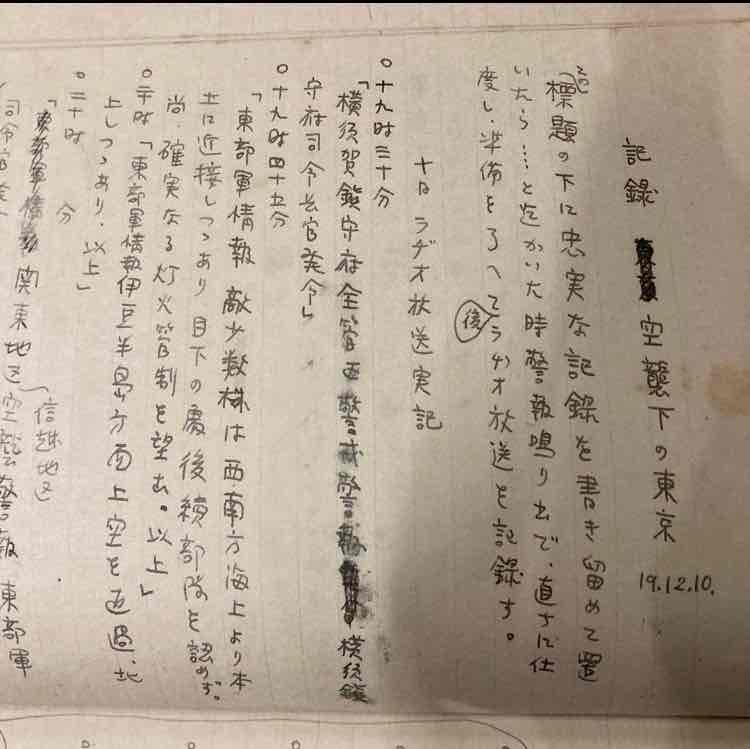 記録 空襲下の東京
19.12.10.
この標題の下に忠実な記録を書き留めて置
いたら…と迄かいた時警報鳴り出で、直さに仕
度し、準備を了へて後ラヂオ放送を記録す。
十日 ラヂオ放送実記
○十九時三十分
「横須賀鎮守府全管区警戒警報 横須鎮
守府司令長官発令」
○十九時四十五分
「東部軍情報 敵少数機は西南方海上より本
土に近接しつつあり 目下の處後続部隊を認めず。
尚、確実なる灯火管制を望む。以上」
「東部軍情報 伊豆半島方面上空を 過、北
上しつつあり、以上」
○二十時 分
「関東地区 信越地区 空襲警報 東部軍
司令官発